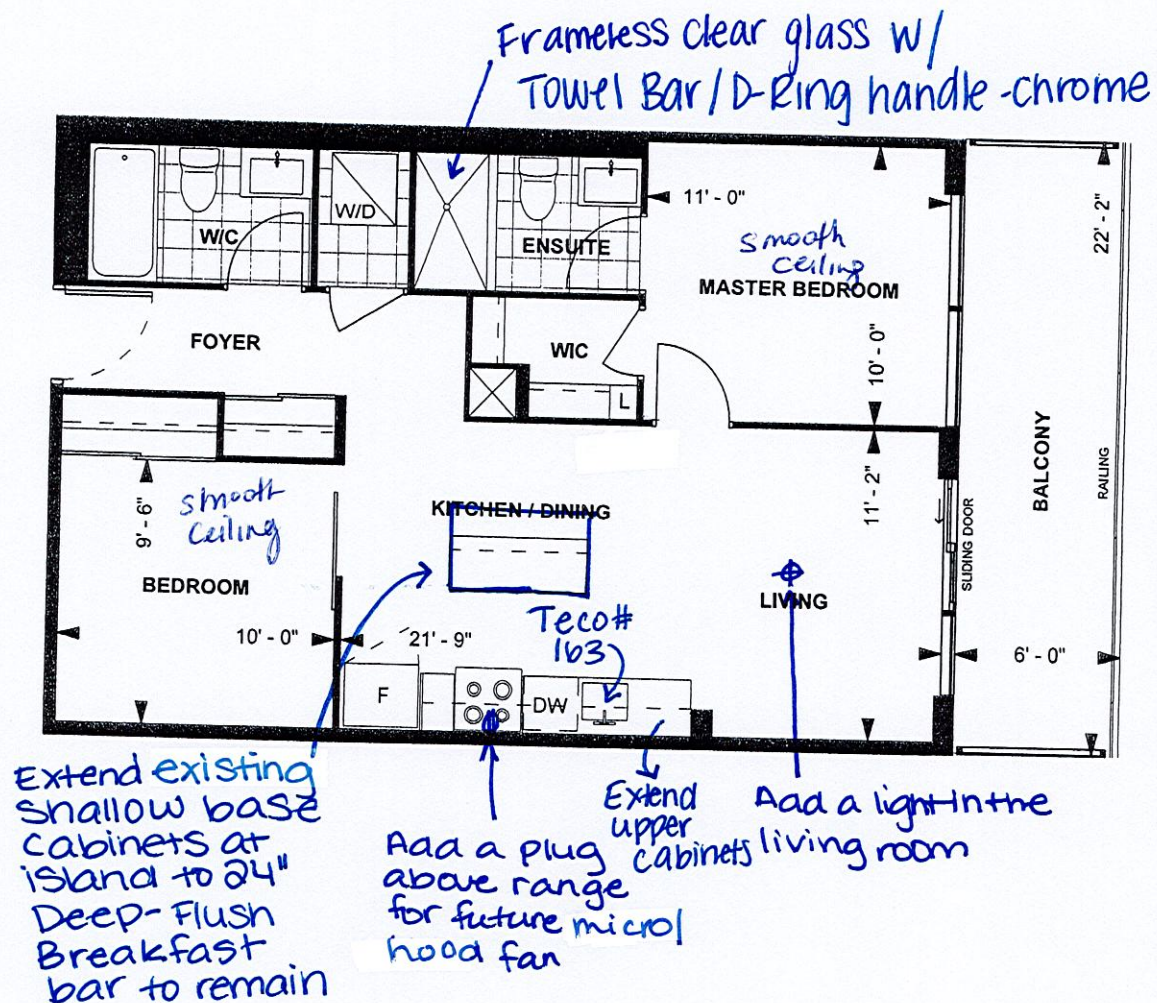 Frameless clear glass w/
Towel Bar/D-Ring handle-chrome
W/C
W/D
ENSUITE
11' - 0"
smooth
ceiling
MASTER BEDROOM
22' - 2"
FOYER
WIC
L
10' - 0"
BALCONY
RAILING
9' - 6"
smooth
ceiling
BEDROOM
KITCHEN / DINING
11' - 2"
SLIDING DOOR
LIVING
10' - 0"
21' - 9"
Teco#
163
6' - 0"
F
DW
Extend existing
shallow base
cabinets at
island to 24"
Deep-Flush
Breakfast
bar to remain
Add a plug
above range
for future micro/
hood fan
Extend
upper
cabinets
Add a light in the
living room